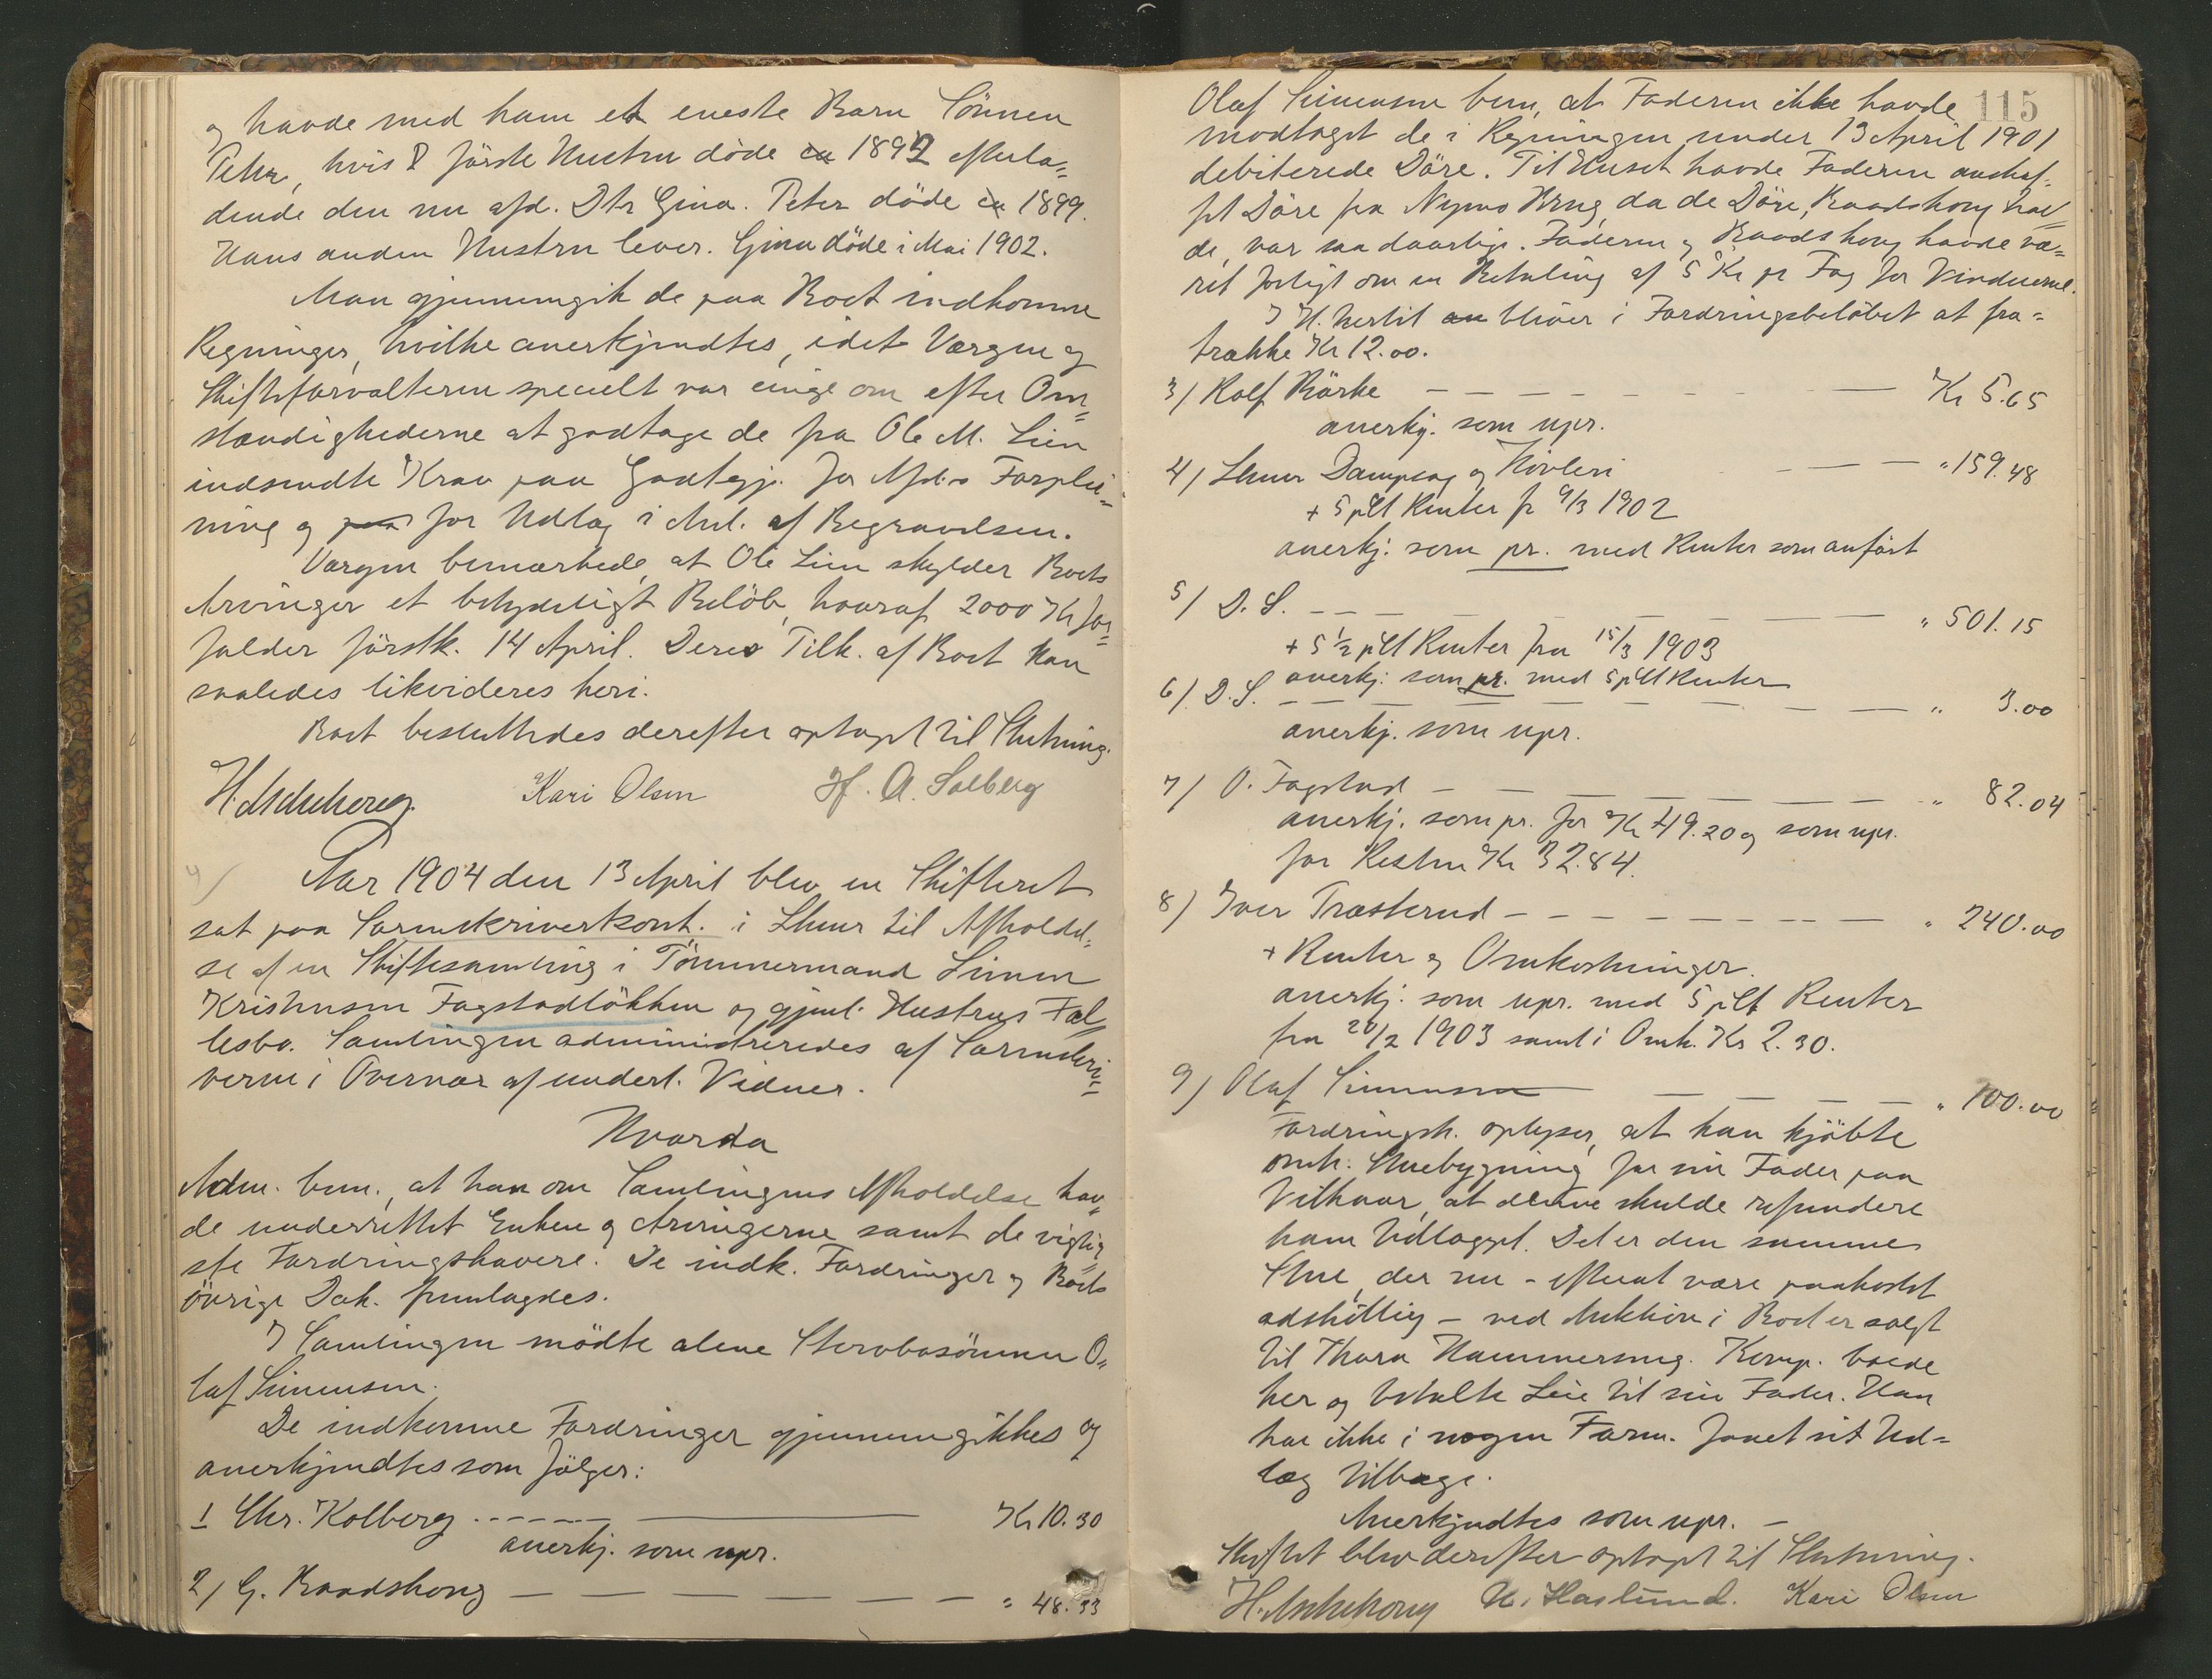 og havde med ham et eneste Barn Sönnen
Peter, hvis första Hustru döde ca 1892 efterla=
dende den nu afd. Dtr Gina. Peter döde ca 1899.
Hans anden Hustru lever. Gina döde i Mai 1902.
Man gjennemgik de paa Boet indkomne
Regninger, hvilke anerkjendtes, idet Værgen og
Skifteforvalteren specielt var enige om efter Om=
stændighederne at godtage de fra Ole M. Lien
indsendte Krav paa Godtgj. for Afd.s Forplei=
ning og paa for Udlæg i Anl. af Begravelsen.
Værgen bemærkede, at Ole Lien skylder Boets
Arvinger et betydeligt Belöb, hvoraf 2000 Kr for=
falder förstk. 14 April. Deres Tilk. af Boet kan
saaledes likvideres heri.
Boet besluttedes derefter optaget til Slutning.
H. Aschehoug Kari Olsen H. A. Solberg
4/
Aar 1904 den 13 April blev en Skifteret
sat paa Sorenskriverkont. i Lhmr til Afholdel=
se af en Skiftesamling i Tömmermand Simen
Kristensen Fagstadlökken og gjenl. Hustrus Fæl=
lesbo. Samlingen administreredes af Sorenskri=
veren i Overvær af undert. Vidner.
Hvorda
Adm. bem., at han om Samlingens Afholdelse hav=
de underrettet Enken og Arvingerne samt de vigtig
ste Fordringshavere. De indk. Fordringer og Boets
övrige Dok. fremlagdes.
I Samlingen mödte alene Stervbosönnen O=
laf Simensen.
De indkomne Fordringer gjennemgikkes og
anerkjendtes som fölger:
1 Chr. Kolberg Kr 10.30
anerkj. som upr.
2/ G. Baadshoug " 48.33
115
Olaf Simensen bem, at Faderen ikke havde
modtaget de i Regningen under 13 April 1901
debiterede Döre. Til Huset havde Faderen anskaf=
fet Döre fra Nymo Brug, da de Döre, Baadshoug hav=
de, var saa daarlige. Faderen og Baadshoug havde væ=
ret forligt om en Betaling af 5 Kr pr Fag for Vinduerne.
I H. hertil an bliver i Fordringsbelöbet at fra=
trække Kr 12.00.
3/ Rolf Börke Kr 5.65
anerkj. som upr.
4/ Lhmr Dampsag og Hövleri " 159.48
+ 5 pCt Renter fr 9/3 1902
anerkj. som pr. med Renter som anfört
5/ D. S. " 501.15
+ 5 1/2 pCt Renter fra 15/3 1903
anerkj. som pr. med 5 pCt Renter
6/ D. S. " 3.00
anerkj. som upr.
7/ O. Fagstad " 82.04
anerkj. som pr. for Kr 49.20 og som upr.
for Resten Kr 32.84.
8/ Iver Træsterud " 240.00
+ Renter og Omkostninger.
anerkj. som upr. med 5 pCt Renter
fra 20/2 1903 samt i Omk. Kr 2.30.
9/ Olaf Simensen " 100.00
Fordringsh. oplyser, at han kjöbte
omh. Stuebygning for sin Fader paa
Vilkaar, at denne skulde refundere
ham Udlægget. Det er den samme
Stue, der nu - efterat være paakostet
adskillig - ved Auktion i Boet er solgt
til Thora Hammerseng. Komp. boede
her og betalte Leie til sin Fader. Han
har ikke i nogen Form. faaet sit Ud=
læg tilbage.
Anerkjendtes som upr. -
Skiftet blev derefter optaget til Slutning.
H. Aschehoug H. Haslund. Kari Olsen